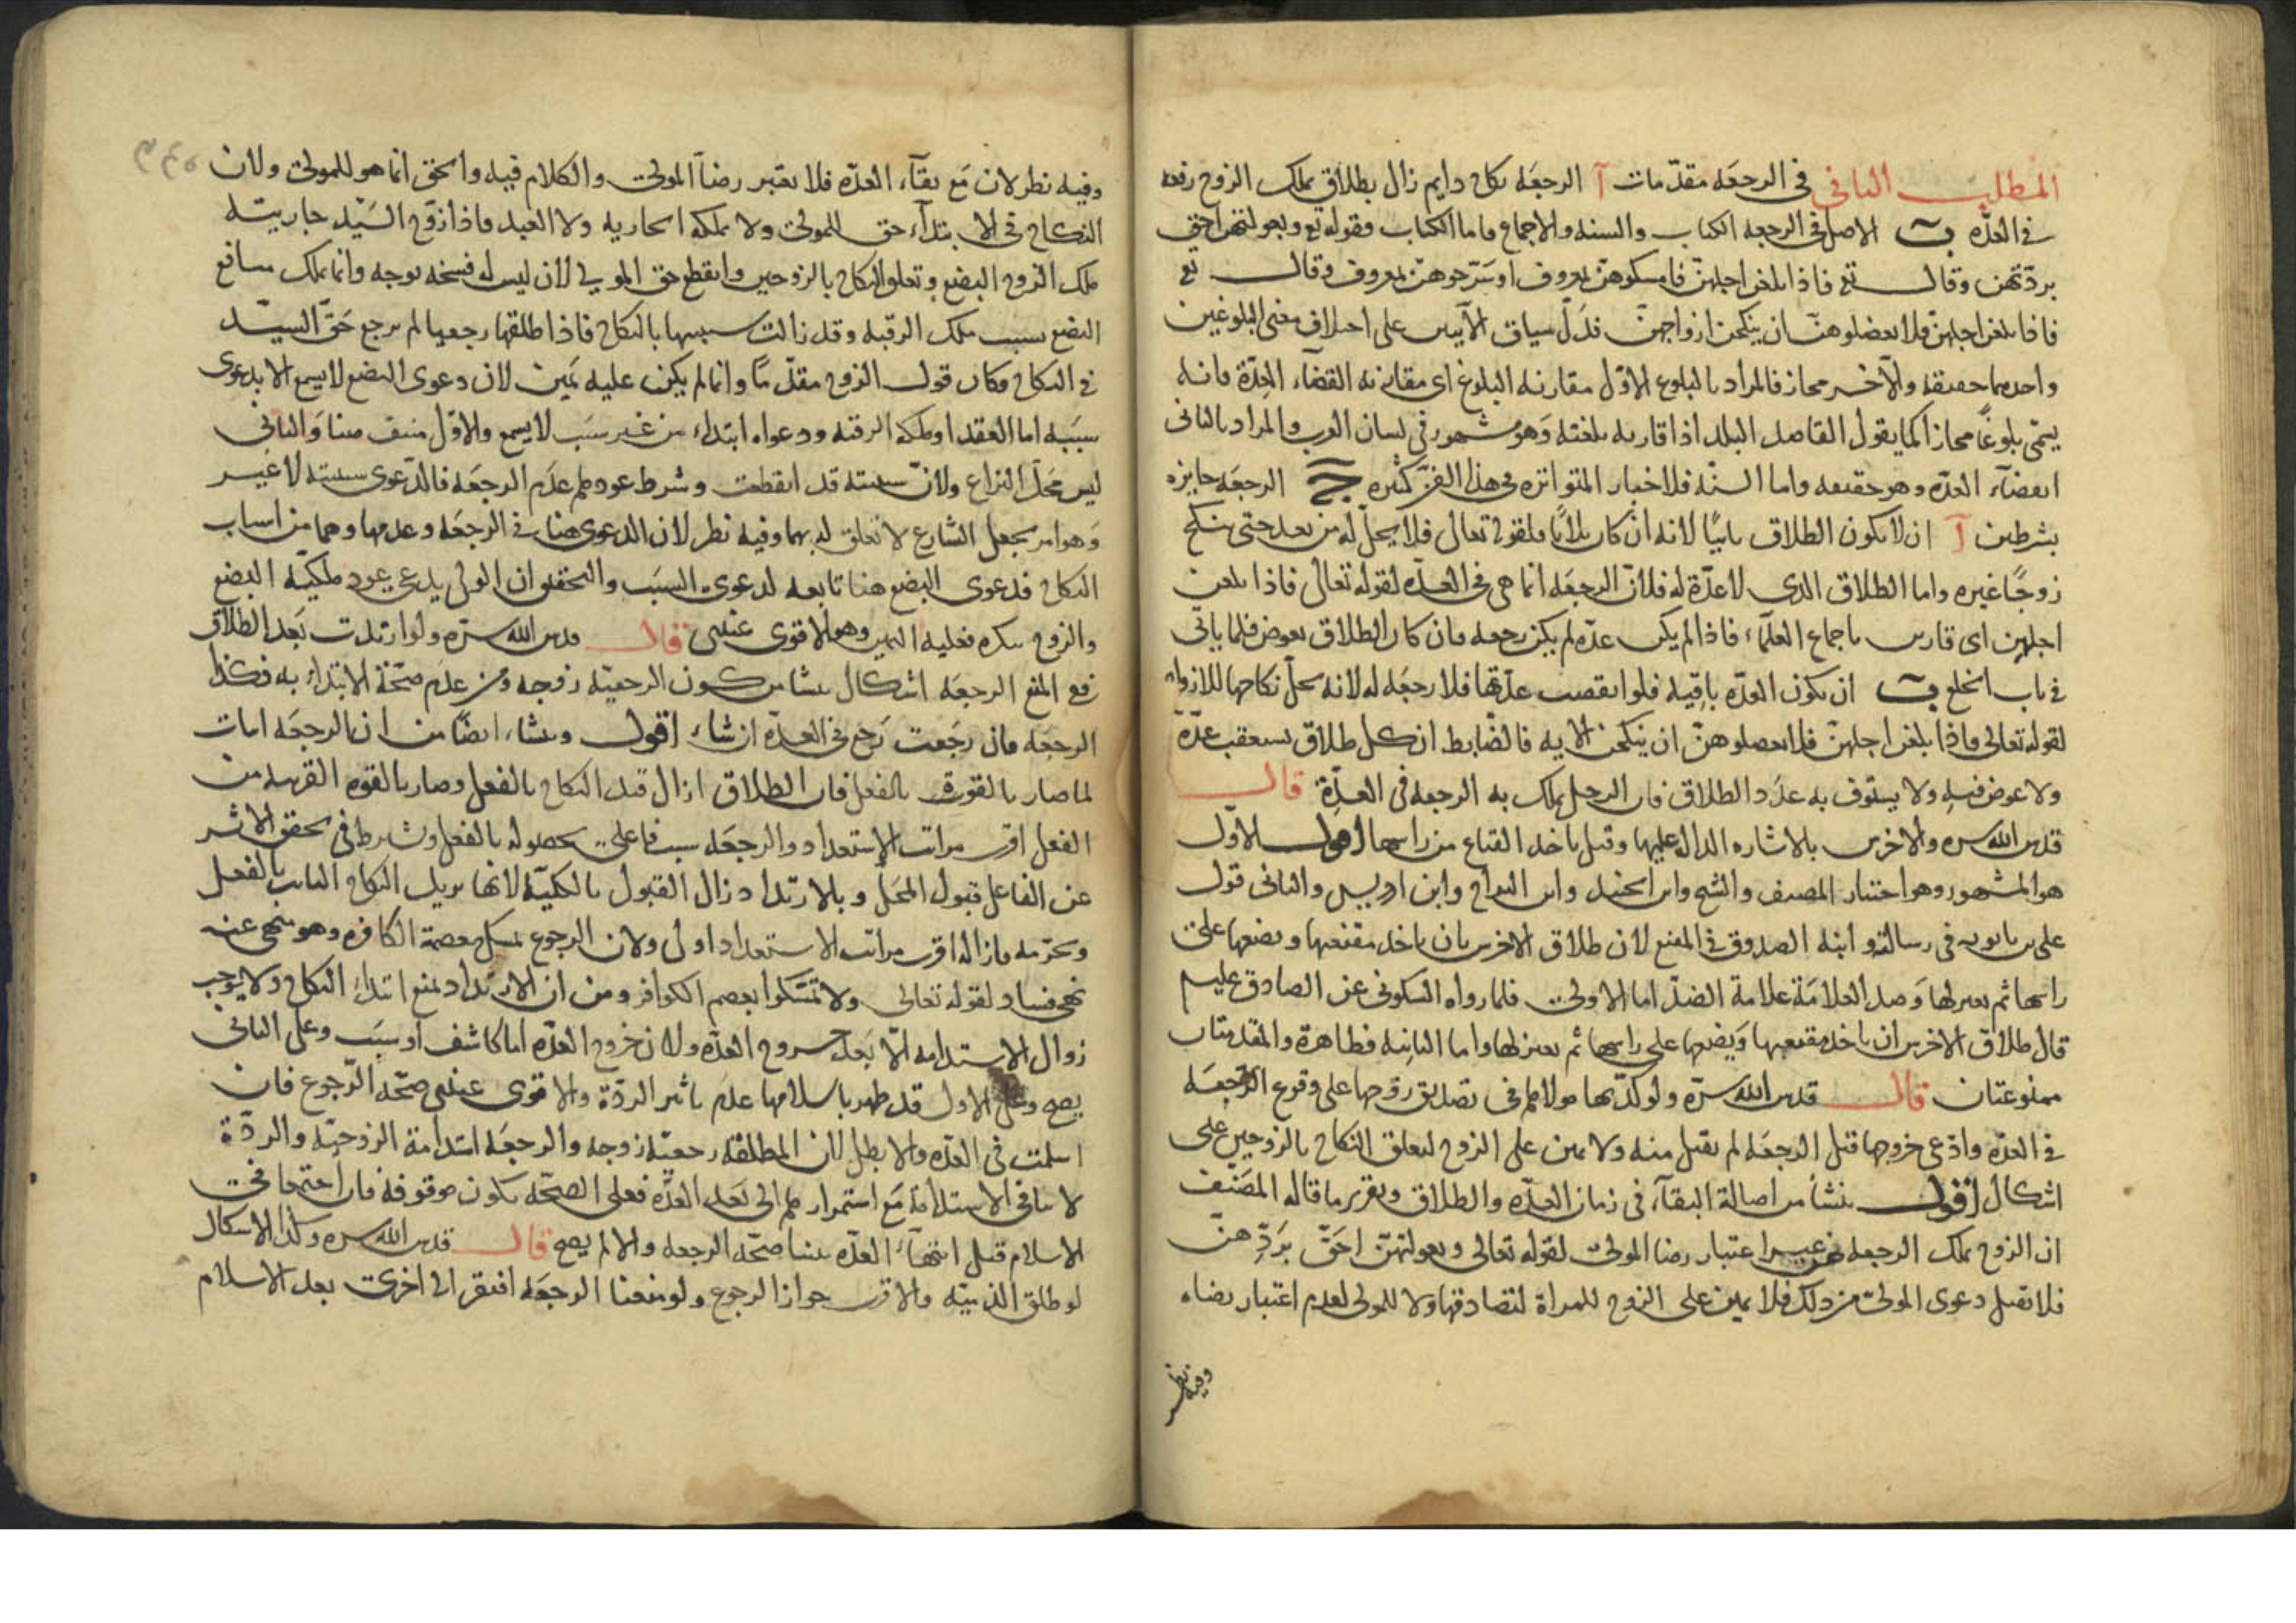 المطلب الثاني في الرجعه مقدّمات آ الرجعَه نكاح دايم زال بطلاق يملك الزوج رفعه
في العدّه ب الاصل في الرجعه الكتاب والسنه والاجماع واما الكتاب فقوله تع وبعولتهن احق
بردّهن وقال تع فاذا بلغن اجلهنّ فامسكوهنّ بمعروف او سَرّحوهنّ بمعروف وقال تع
فاذا بلغن اجلهنّ فلا تعضلوهنّ ان ينكحن ازواجهنّ فدلّ سياق الآيتين على اختلاف معنى البلوغين
واحدهما حقيقة والآخر مجاز فالمراد بالبلوغ الاوّل مقارنه البلوغ اى مقارنه انقضآء العِدّة فانه
يسمّى بلوغًا مجازا كما يقول القاصد البلد اذا قاربه بلغته وَهو مشهور في لسان العرب والمراد بالثانى
انقضآء العدّه وهو حقيقه واما السنّه فلاخبار المتواتره في هذا الفن كثيره ج الرجعَه جايزه
بشرطين آ ان لا يكون الطلاق باينًا لانه ان كان ثلاثًا فلقوله تعالى فلا يحلّ له من بعد حتى تنكح
زوجًا غيره واما الطلاق الذى لا عدّة له فلانّ الرجعَه انما هى في العدّه لقوله تعالى فاذا بلغن
اجلهن اى قاربن باجماع العلمآء فاذا لم يكن عدّه لم يكن رجعه وان كان الطلاق بعوض فلما ياتى
في باب الخلع ب ان يكون العدّه باقيه فلو انقضت عدّتها فلا رجعَه له لانه يحلّ نكاحها للازواج
لقوله تعالى فاذا بلغن اجلهنّ فلا تعضلوهنّ ان ينكحن الايه فالضّابط ان كل طلاق يستعقب عدّة
ولا عوض فيه ولا يستوفى به عدَد الطلاق فان الرجل يملك به الرجعه في العدّة قال
قدس الله سره والاخرس بالاشاره الداله عليها وقيل ياخذ القناع من راسها اقول الاوّل
هو المشهور وهو اختيار المصنف والشيخ وابن الجنيد وابن البراج وابن ادريس والثانى قول
على بن بابويه في رسالته وابنه الصدوق في المقنع لان طلاق الاخرس بان ياخذ مقنعتها ويضعها على
راسها ثم يعتزلها وَضد العلامَة علامة الضدّ اما الاولى فلما رواه السكونى عن الصادق عليه م
قال طلاق الاخرس ان ياخذ مقنعتها وَيضعها على راسها ثم يعتزلها واما الثانيه فظاهرة والمقدمتان
ممنوعتان قال قدس الله سرّه ولو كذّبها مولاها في تصديق زوجها على وقوع الرّجعَه
في العدّه وادّعى خروجها قبل الرجعَه لم يقبل منه ولا يمين على الزوج لتعلق النكاح بالزوجين على
اشكال اقول ينشأ من اصالة البقآء في زمان العدّه والطلاق وتقرير ما قاله المصَنّف
ان الزوج يملك الرجعه من غير اعتبار رضا المولى لقوله تعالى وبعولتهنّ احَقّ بَرَدّهنّ
فلا تقبل دعوى المولى من ذلك فلا يمين على الزوج للمراة لتصادقها ولا للمولى لعدم اعتبار رضاه
وفيه نظر
وفيه نظر لان مَع بقآء العدّه فلا يعتبر رضآ المولى والكلام فيه والحق انما هو للمولى ولان
النكاح في الابتدآء حق للمولى ولا يملكه الجاريه ولا العبد فاذا زوّج السَيّد جاريته
ملك الزوج البضع وتعلق النكاح بالزوجين وانقطع حق المولى لان ليس له فسخه بوجه وانما يملك منافع
البضع بسبب ملك الرقبه وقد زالت سببيها بالنكاح فاذا طلقها رجعيا لم يرجع حَقّ السيّد
في النكاح فكان قول الزوج مقدّمًا وانما لم يكن عليه يَمين لان دعوى البضع لا يسمع الا بدعوى
سببه اما العقد او ملكه الرقبه ودعواه ابتداء من غير سبَب لا يسمع والاوّل منتف هنا وَالثانى
ليس محَلّ النزاع ولانّ سببيته قد انقطعت وشرط عودها عدَم الرجعَه فالدّعوى سببيته لا غير
وَهو امر بجعل الشارع لا تعلق له بهما وفيه نظر لان الدعوى هنا في الرجعَه وعدمها وهما من اسباب
النكاح فدعوى البضع هنا تابعه لدعوى السبَب والتحقيق ان المولى يدعى عود ملكيّه البضع
والزوج ينكره فعليه اليمين وهو الاقوى عندى قال قدس الله سرّه ولو ارتدت بَعد الطلاق
رجع المنع الرجعَه اشكال ينشا من كون الرجعيّه زوجه ومن عدَم صحّة الابتداء به فكذا
الرجعَه فان رجَعت رَجع في العدّه ان شاء اقول وينشاء ايضًا من ان الرجعَه اثبات
لما صار بالقوة بالفعل فان الطلاق ازال قيد النكاح بالفعل وصار بالقوه القريبه من
الفعل اقرب مراتب الاستعداد والرجعَه سبب فاعلى بحصوله بالفعل وشرط في تحقق الاثر
عن الفاعل قبول المحَل وبالارتداد زال القبول بالكليّه لانها يزيل النكاح الثابت بالفعل
ويحرّمه فازاله اقرب مراتب الاستعداد اولى ولان الرجوع تمسك بعصمة الكافره وهو منهى عنه
نهى فساد لقوله تعالى ولا تمسّكوا بعصم الكوافر ومن ان الارتداد يمنع ابتداء النكاح ولا يوجب
زوال الاستدامه الّا بعَد خروج العدّه ولان خروج العدّه اما كاشف او سبَب وعلى الثانى
يصح وعلى الاول قد ظهر باسلامها عدم تاثير الردّة والاقوى عندى صحّه الرّجوع فان
اسلمت في العدّه والا بطل لان المطلقه رجعيّه زوجه والرجعَه استدامة الزوجيّه والردّة
لا ينافي الاستدامة مَع استمرارها الى بَعد العدّه فعلى الصحّه يكون موقوفه فان اجتمعا في
الاسلام قبل انتهآء العدّه بينا صحّه الرجعه والا لم يصح قال قدس الله سره وكذا الاشكال
لو طلق الذميّه والاقرب جواز الرجوع ولو منعنا الرجعَه افتقر الى اخرى بعد الاسلام